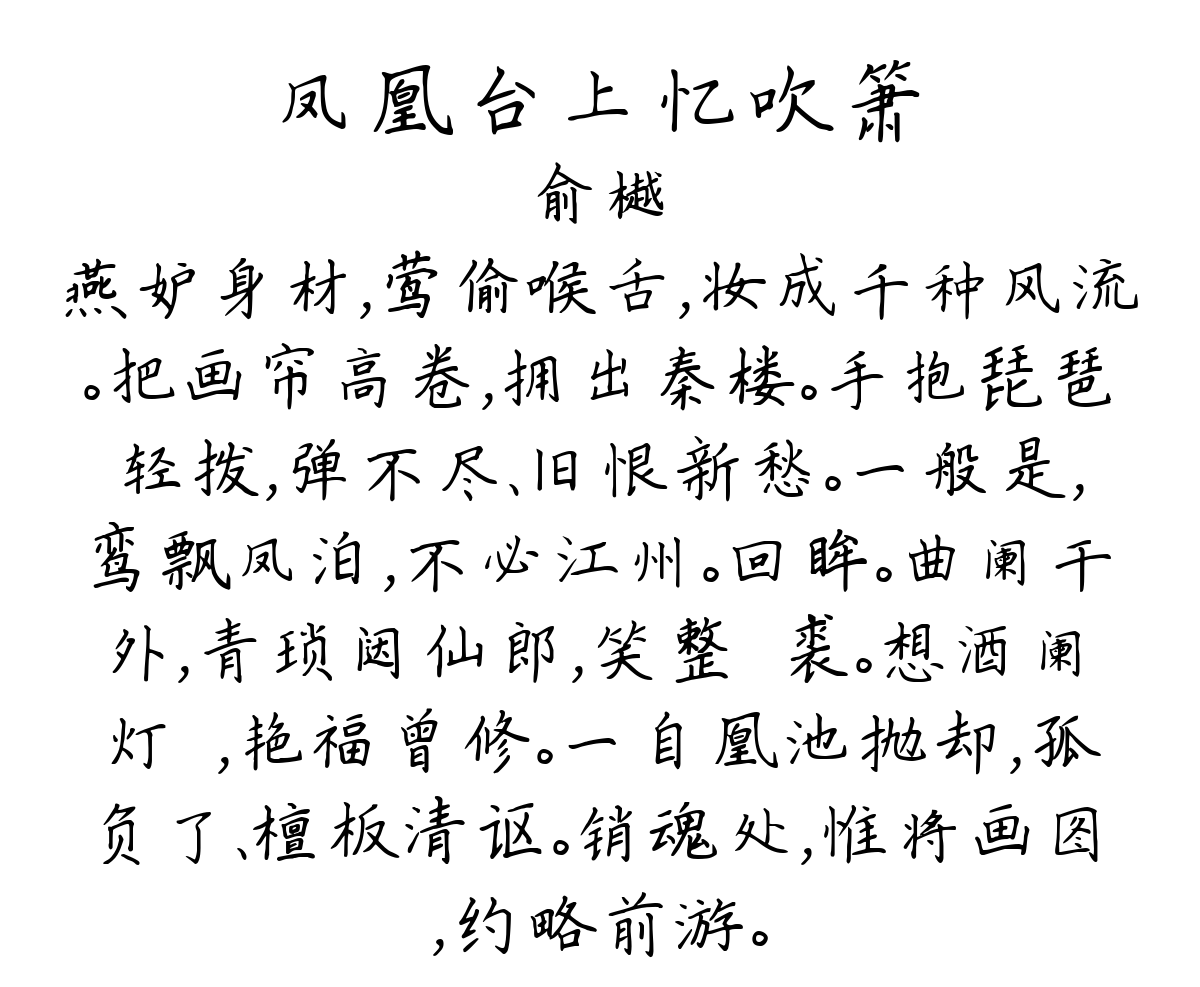 凤凰台上忆吹箫
俞樾
燕妒身材,莺偷喉舌,妆成千种风流
。把画帘高卷,拥出秦楼。手抱琵琶
轻拨,弹不尽、旧恨新愁。一般是,
鸾飘凤泊,不必江州。回眸。曲阑干
外,青琐闼仙郎,笑整 裘。想酒阑
灯 ,艳福曾修。一自凰池抛却,孤
负了、檀板清讴。销魂处,惟将画图
,约略前游。